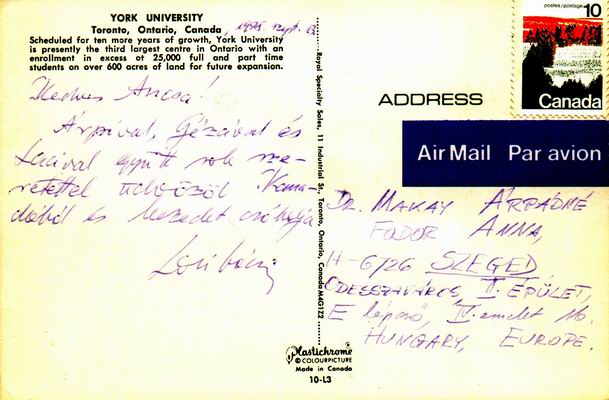 YORK UNIVERSITY
Toronto, Ontario, Canada, 1975. szept. 13.
Scheduled for ten more years of growth, York University
is presently the third largest centre in Ontario with an
enrollment in excess of 25,000 full and part time
students on over 600 acres of land for future expansion.
Kedves Ancsa!
Árpival, Gézával és
Lacival együtt sok sze-
retettel üdvözöl Kana-
dából és kezedet csókolja
Lori bácsi
Royal Specialty Sales, 11 Industrial St., Toronto, Ontario, Canada M4G1Z2
Plastichrome
© COLOURPICTURE
Made in Canada
10-L3
postes/postage 10
Canada
ADDRESS
Air Mail Par avion
Dr. MAKAY ÁRPÁDNÉ
FODOR ANNA,
H-6726 SZEGED
ODESSZAVÁROS, II. ÉPÜLET,
E lépcső, IV. emelet 16.
HUNGARY, EUROPE.